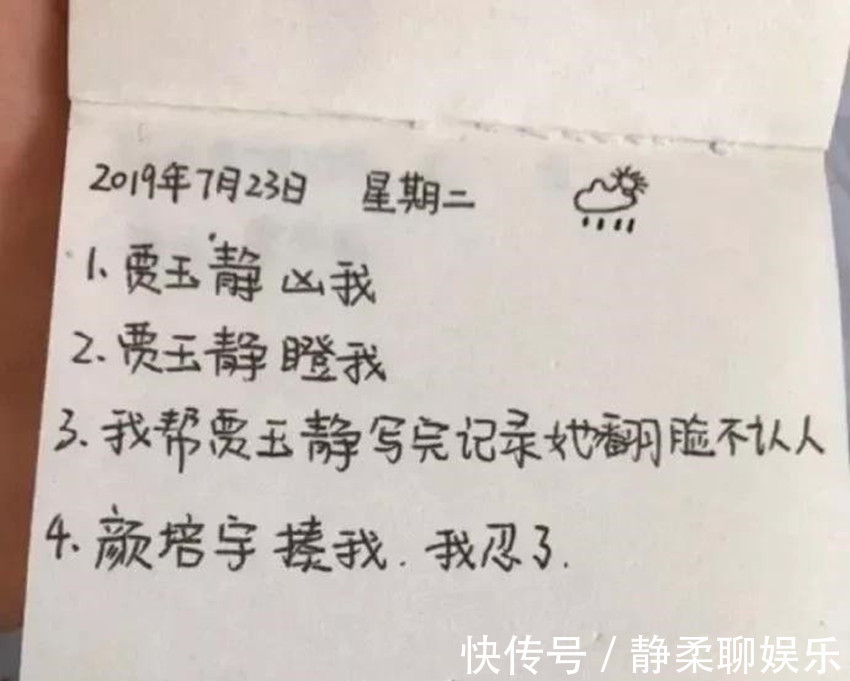 2019年7月23日 星期二
1、贾玉静凶我
2、贾玉静瞪我
3、我帮贾玉静写完记录她翻脸不认人
4、颜培宇揍我.我忍了.
快传号/静柔聊娱乐